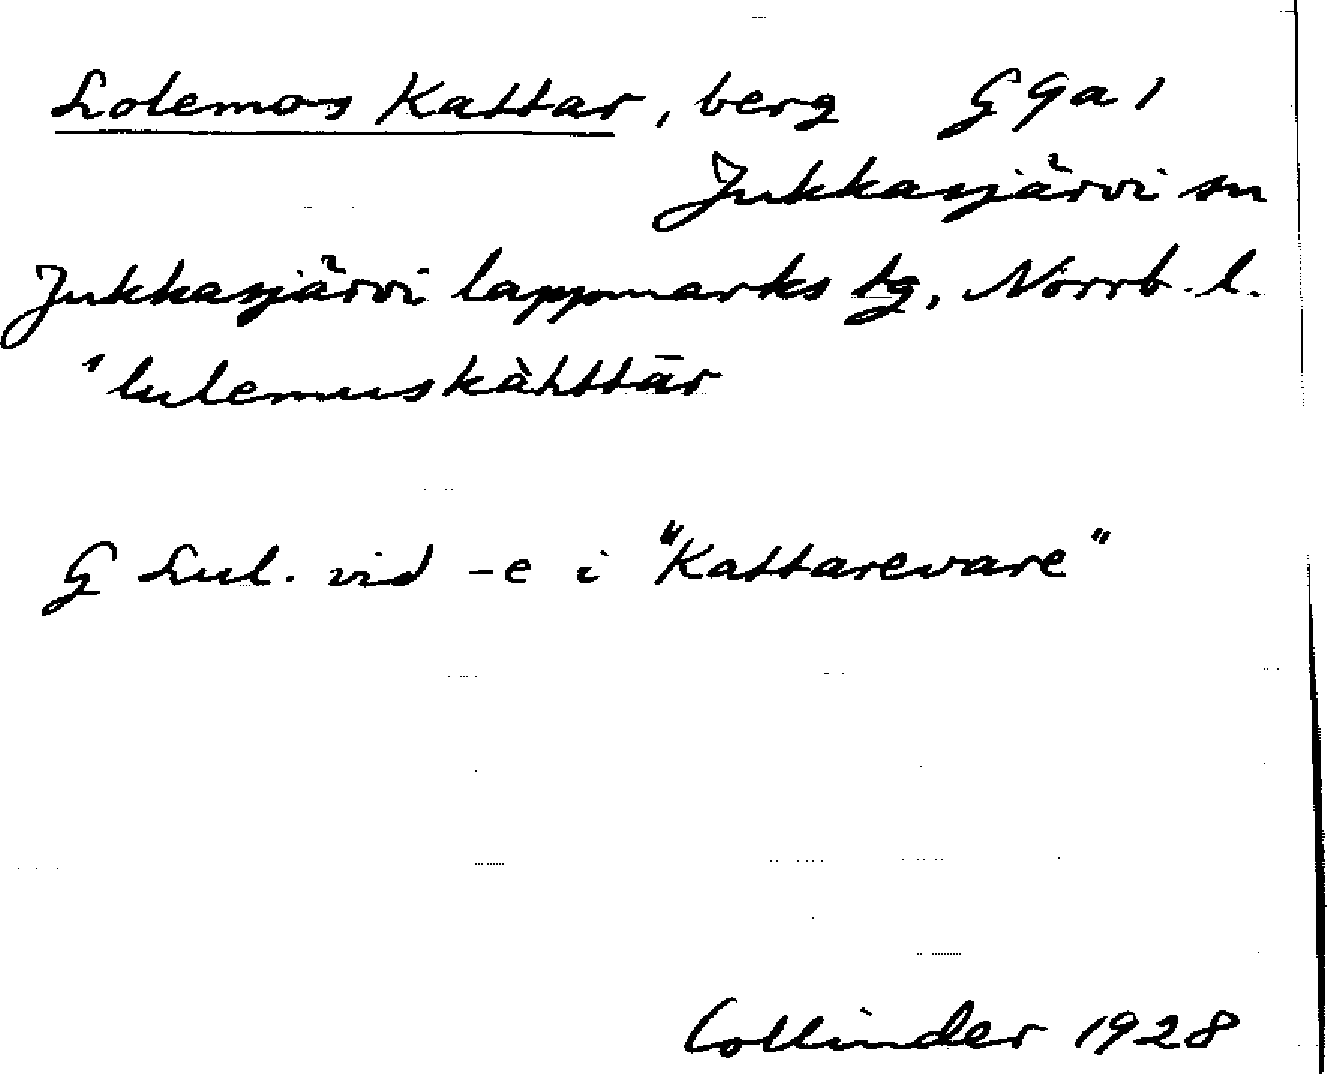 Lolemos Kattar, berg G9a1
Jukkasjärvi sn
Jukkasjärvi lappmarks tg, Norrb. l.
ˈlulemuskàhttār
G Lul. vid -e i "Kattarevare"
Collinder 1928